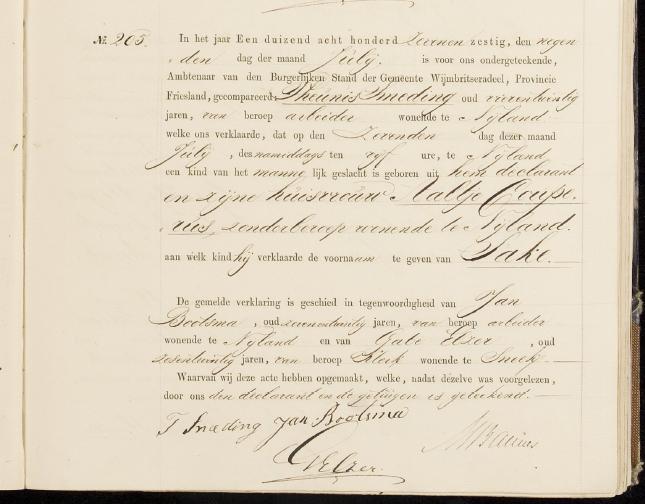 №. 205.
In het jaar Een duizend acht honderd zevenen zestig, den negen
den dag der maand Julij. is voor ons ondergeteekende,
Ambtenaar van den Burgerlijken Stand der Gemeente Wijmbritseradeel, Provincie
Friesland, gecompareerd: Theunis Smeding oud vierentwintig
jaren, van beroep arbeider wonende te Nyland
welke ons verklaarde, dat op den zevenden dag dezer maand
Julij, des namiddags ten vijf ure, te Nyland
een kind van het manne lijk geslacht is geboren uit hem declarant
en zijne huisvrouw Aaltje Coupe-
rus, zonder beroep wonende te Nyland.
aan welk kind hij verklaarde de voornaam te geven van Sake.
De gemelde verklaring is geschied in tegenwoordigheid van Jan
Bootsma, oud zevenentwintig jaren, van beroep arbeider
wonende te Nyland en van Gabe Elzer, oud
zesentwintig jaren, van beroep Klerk wonende te Sneek.
Waarvan wij deze acte hebben opgemaakt, welke, nadat dezelve was voorgelezen,
door ons den declarant en de getuigen is geteekend.
T Smeding Jan Bootsma
GElzer.